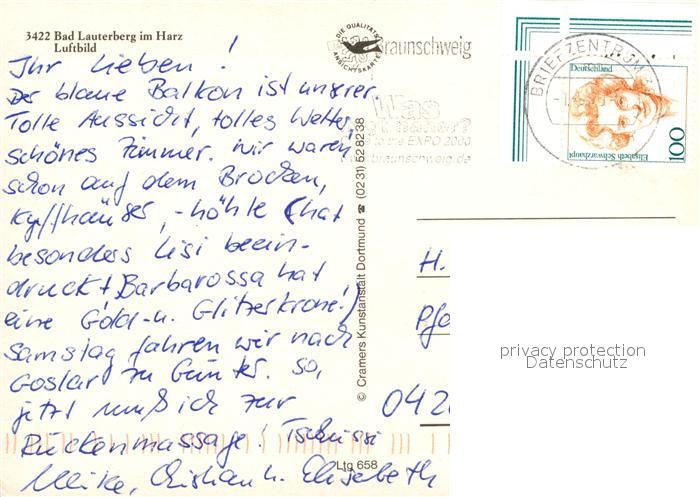 3422 Bad Lauterberg im Harz
Luftbild
Ihr Lieben!
Der blaue Balkon ist unsrer
Tolle Aussicht, tolles Wetter,
schönes Zimmer. Wir waren
schon auf dem Brocken,
Kyffhäuser, -höhle (hat
besonders Lisi beein-
druckt, Barbarossa hat
eine Gold- u. Glitzerkrone!)
Samstag fahren wir nach
Goslar zu Günter. So,
jetzt muß ich zur
Rückenmassage! Tschüssi
Ulrike, Christian u. Elisabeth
DIE QUALITÄTS
ANSICHTSKARTE
Braunschweig
Was
to the EXPO 2000
braunschweig.de
© Cramers Kunstanstalt Dortmund ☎ (0231) 528238
Ltg 658
BRIEFZENTRUM
Deutschland
Elisabeth Schwarzhaupt
100
H.
Pfe
042
privacy protection
Datenschutz